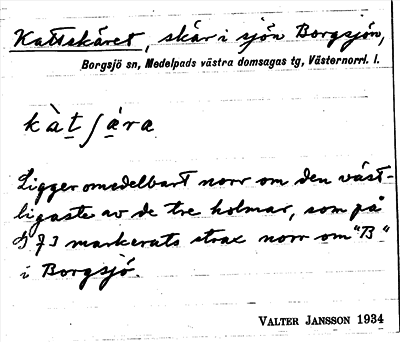 Kattskäret, skär i sjön Borgsjön,
Borgsjö sn, Medelpads västra domsagas tg, Västernorrl. l.
kàt ʃära
Ligger omedelbart norr om den väst-
ligaste av de tre holmar, som på
markerats strax norr om "B"
i Borgsjö.
VALTER JANSSON 1934